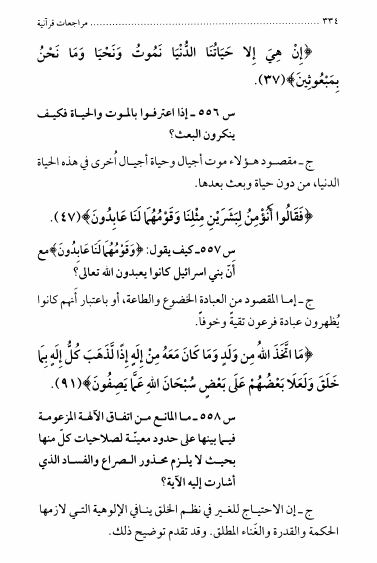 ٣٣٤ ........................................ مراجعات قرآنية
﴿إِنْ هِيَ إِلا حَيَاتُنَا الدُّنْيَا نَمُوتُ وَنَحْيَا وَمَا نَحْنُ
بِمَبْعُوثِينَ﴾(٣٧).
س ٥٥٦ ـ إذا اعترفوا بالموت والحياة فكيف
ينكرون البعث؟
ج ـ مقصود هؤلاء موت أجيال وحياة أجيال أُخرى في هذه الحياة
الدنيا، من دون حياة وبعث بعدها.
﴿فَقَالُوا أَنُؤْمِنُ لِبَشَرَيْنِ مِثْلِنَا وَقَوْمُهُمَا لَنَا عَابِدُونَ﴾(٤٧).
س ٥٥٧ ـ كيف يقول: ﴿وَقَوْمُهُمَا لَنَا عَابِدُونَ﴾ مع
أنّ بني اسرائيل كانوا يعبدون الله تعالى؟
ج ـ إما المقصود من العبادة الخضوع والطاعة، أو باعتبار أنهم كانوا
يُظهرون عبادة فرعون تقيةً وخوفاً.
﴿مَا اتَّخَذَ اللهُ مِن وَلَدٍ وَمَا كَانَ مَعَهُ مِنْ إِلَهٍ إِذًا لَّذَهَبَ كُلُّ إِلَهٍ بِمَا
خَلَقَ وَلَعَلَا بَعْضُهُمْ عَلَى بَعْضٍ سُبْحَانَ اللهِ عَمَّا يَصِفُونَ﴾(٩١).
س ٥٥٨ ـ ما المانع من اتفاق الآلهة المزعومة
فيما بينها على حدود معينّة لصلاحيات كلّ منها
بحيث لا يلزم محذور الصراع والفساد الذي
أشارت إليه الآية؟
ج ـ إن الاحتياج للغير في نظم الخلق ينافي الإلوهية التي لازمها
الحكمة والقدرة والغَناء المطلق. وقد تقدم توضيح ذلك.